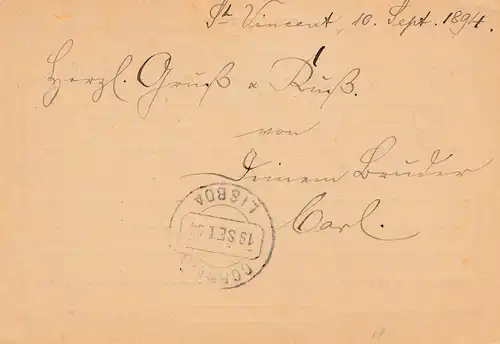 St. Vincent, 10. Sept. 1894.
Herzl. Gruß & Kuß.
von
Deinem Bruder
Carl.
CORREIO
19 SET. 94
LISBOA